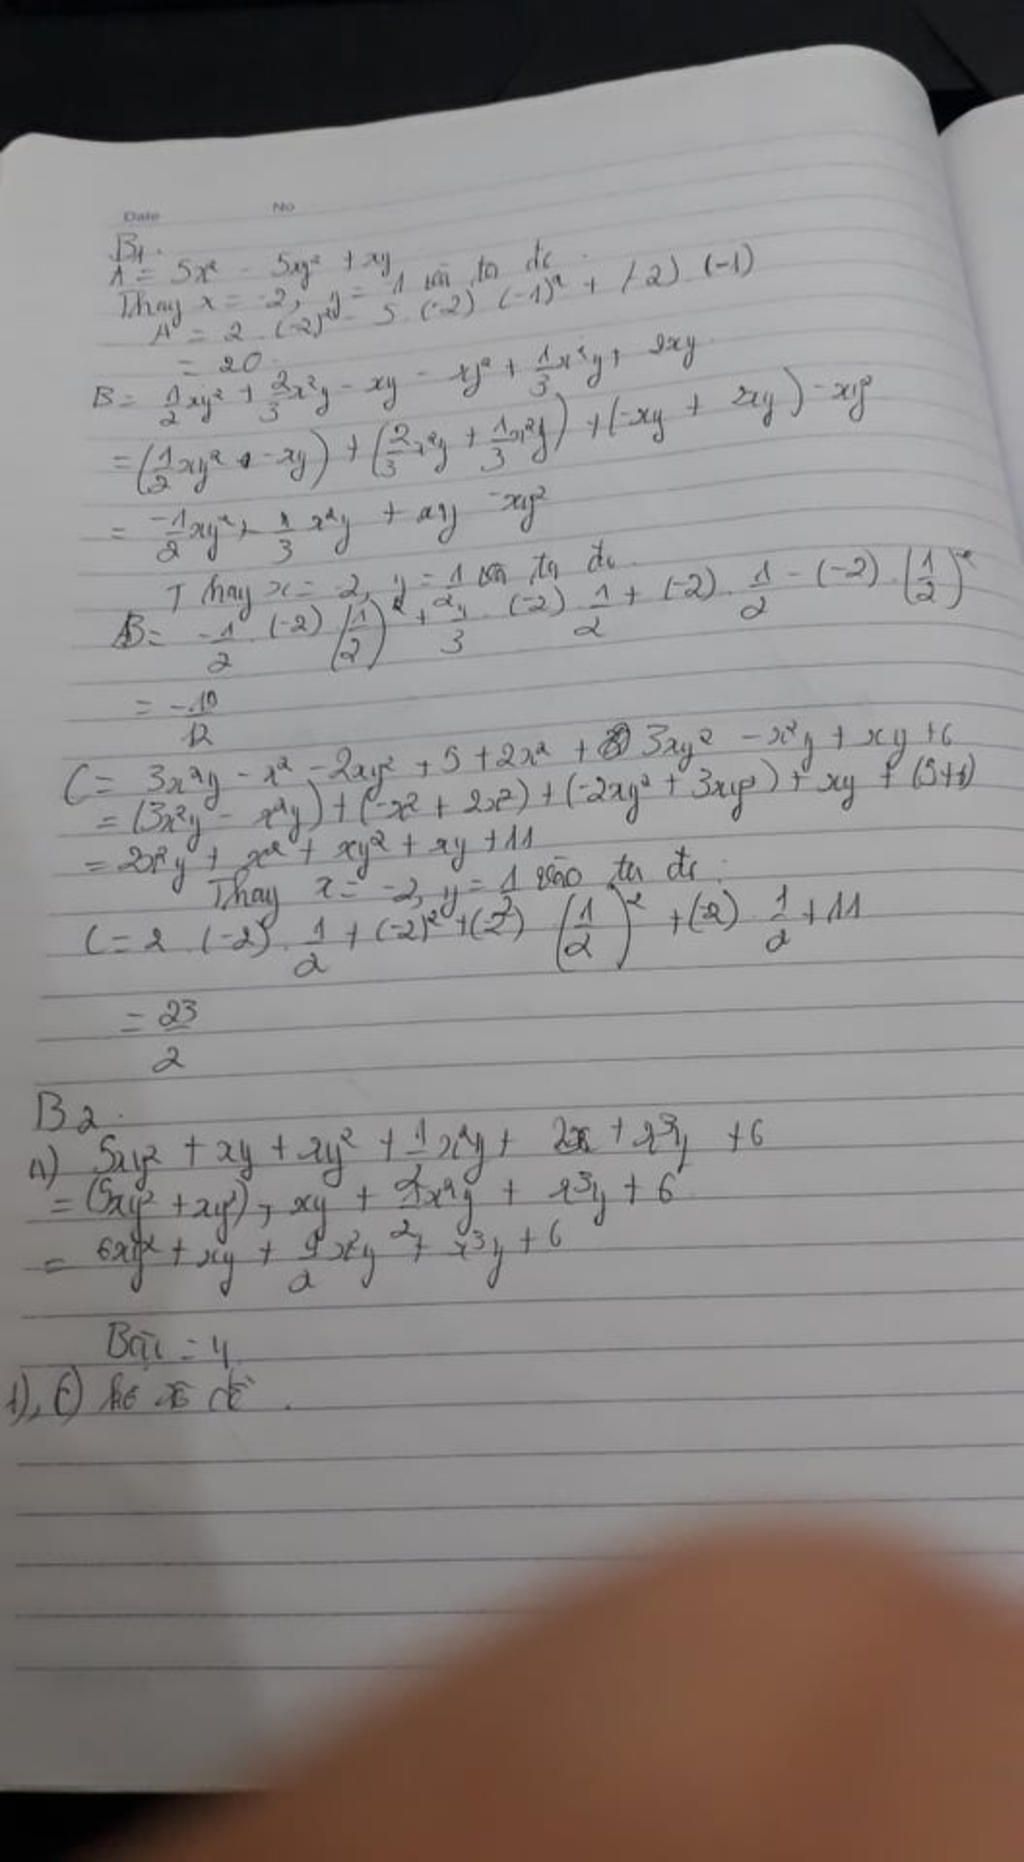 Date No
B1.
A = 5x² - 5xy² + xy
Thay x = -2, y = -1 vào ta đc
A = 2 . (-2)² - 5 . (-2) . (-1)² + (-2) . (-1)
= 20
B = 1/2 xy² + 2/3 x²y - xy - xy² + 1/3 x²y + 2xy
= (1/2 xy² - xy) + (2/3 x²y + 1/3 x²y) + (-xy + 2xy) - xy²
= -1/2 xy² + 1/3 x²y + xy - xy²
Thay x = -2, y = 1/2 vào ta đc
B = -1/2 . (-2) (1/2)² + /3 . (-2) . 1/2 + (-2) . 1/2 - (-2) . (1/2)²
= -10/12
C = 3x²y - x² - 2xy² + 5 + 2x² + 3xy² - x²y + xy + 6
= (3x²y - x²y) + (-x² + 2x²) + (-2xy² + 3xy²) + xy + (5+6)
= 2x²y + x² + xy² + xy + 11
Thay x = -2, y = 1/2 vào ta đc :
C = 2 . (-2)² . 1/2 + (-2)² + (-2) . (1/2)² + (-2) . 1/2 + 11
= 23/2
B2.
A) 5xy² + xy + xy² + 1/2 x²y + 2x + x³y + 6
= (5xy² + xy²) + xy + 1/2 x²y + x³y + 6
= 6xy² + xy + 1/2 x²y + x³y + 6
Bậc = 4
đề .